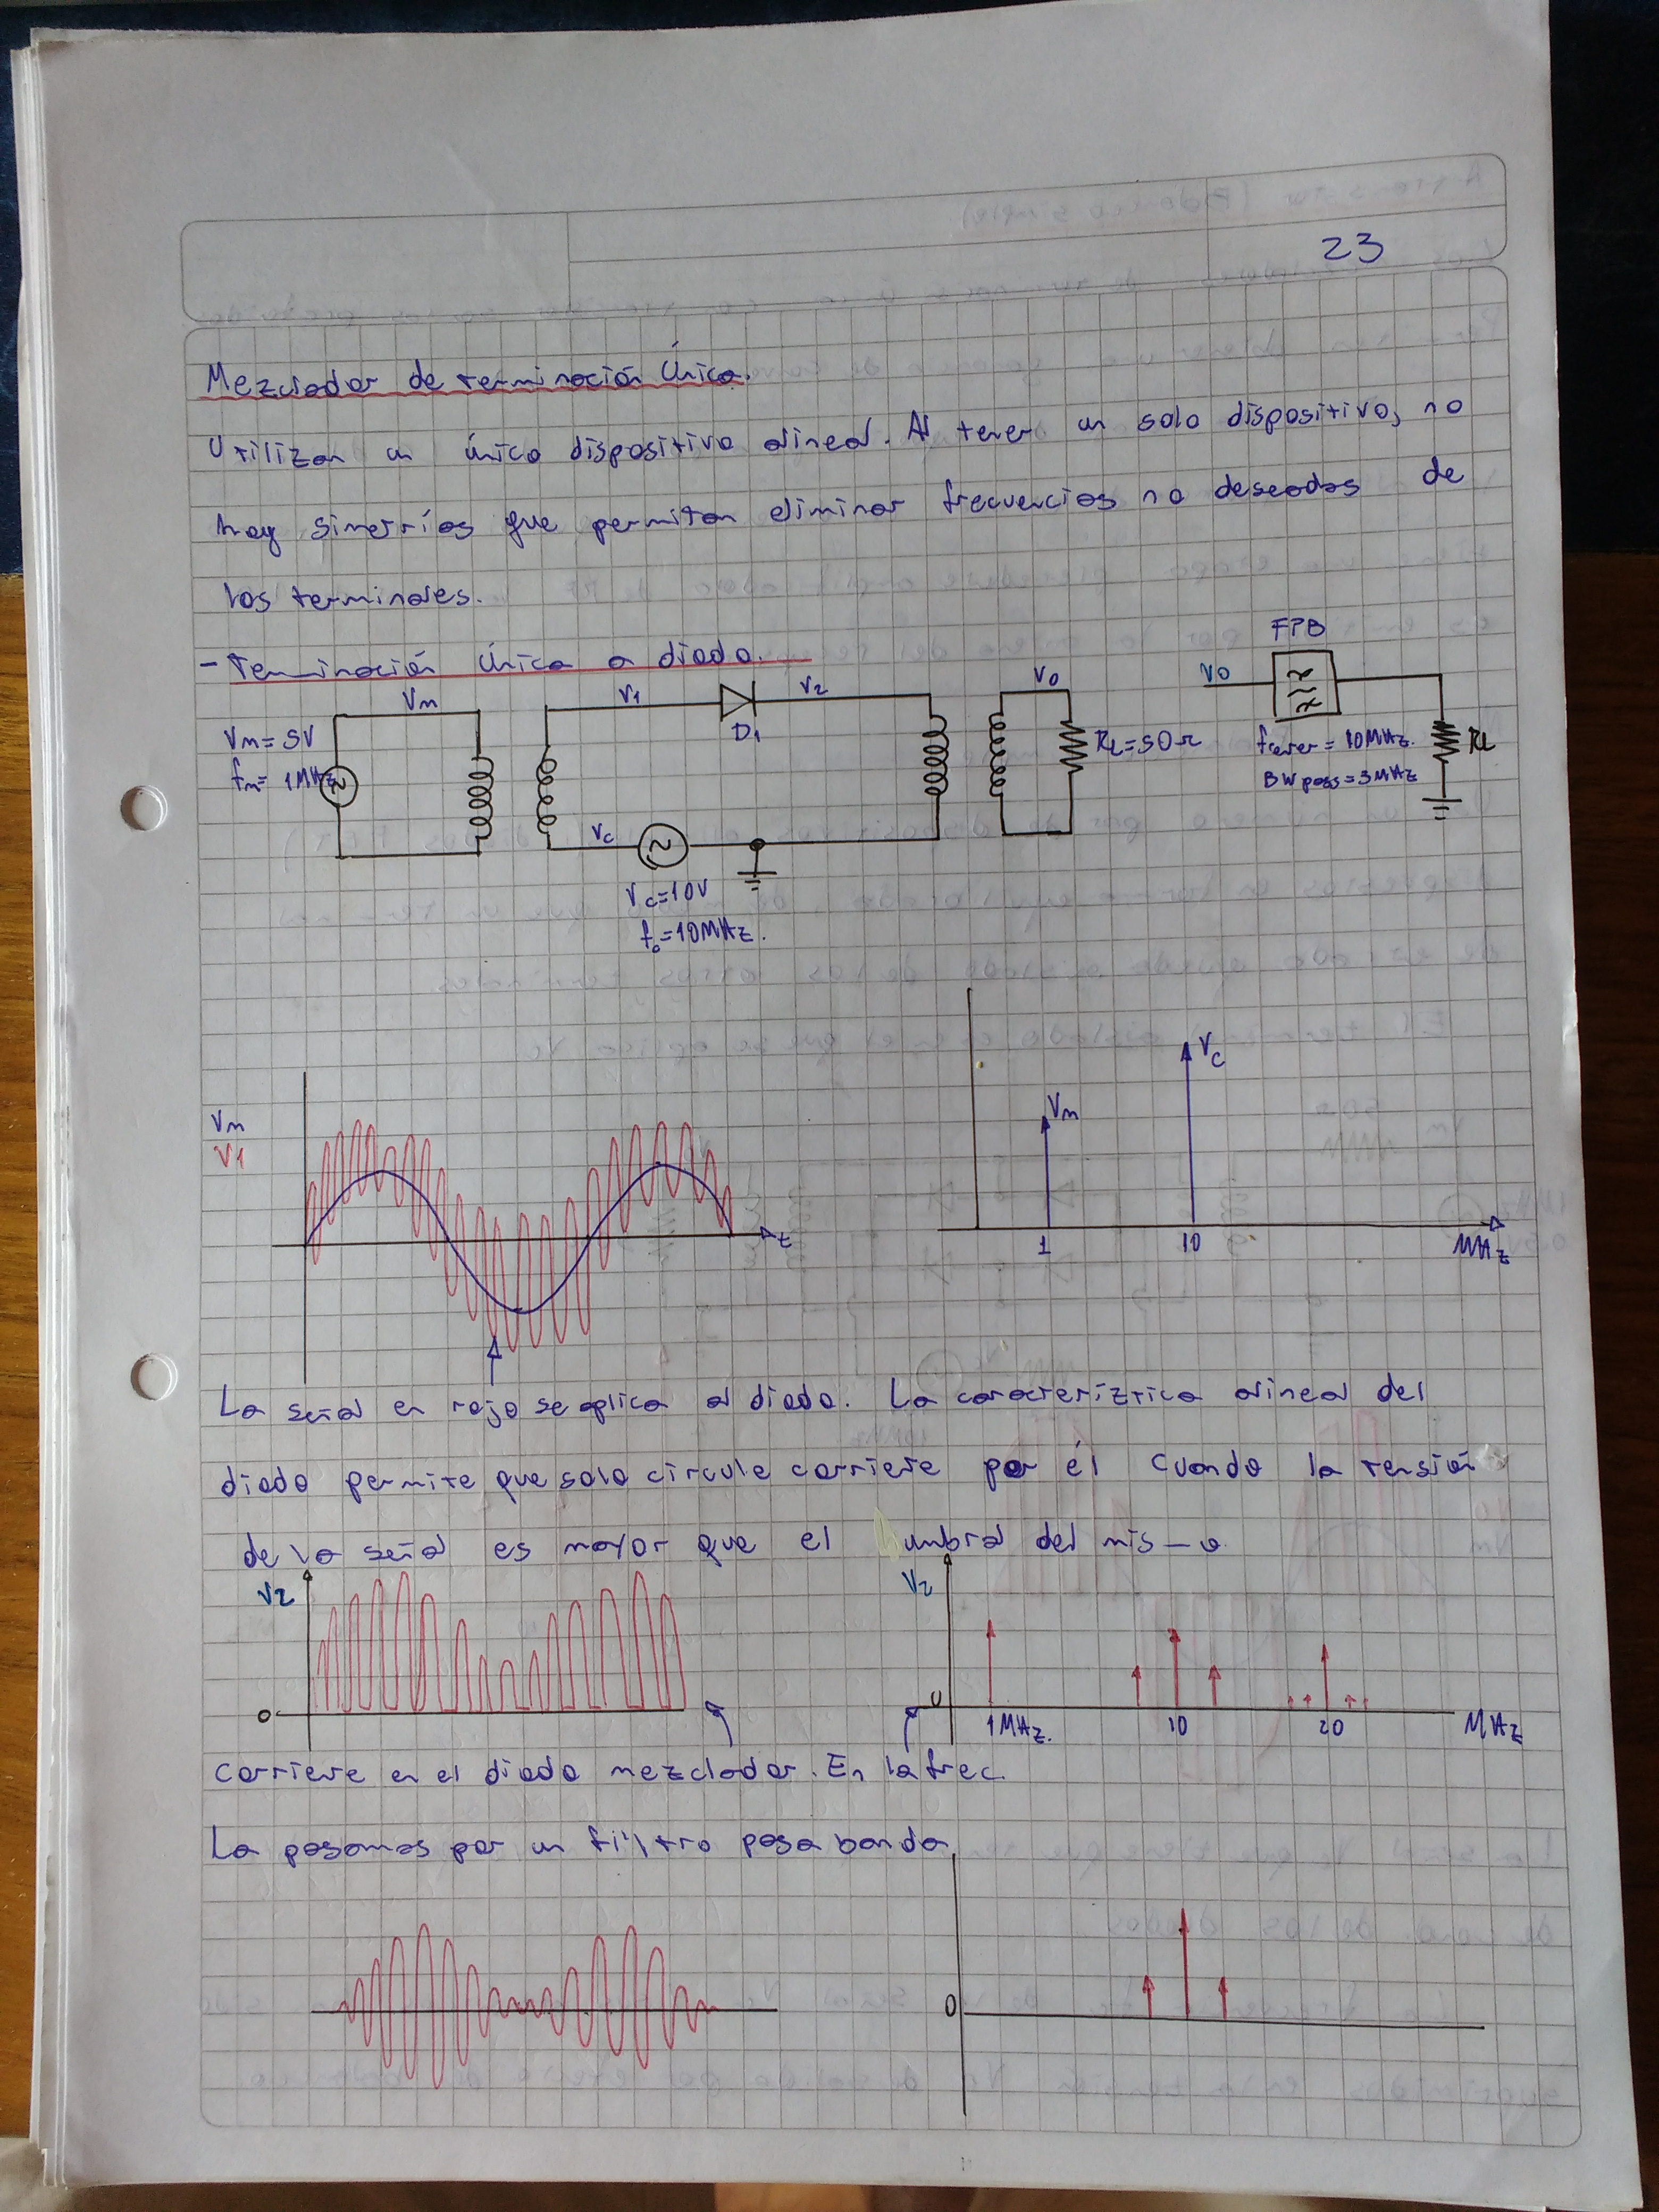 23
Mezclador de terminación Única.
Utilizan un único dispositivo alineal. Al tener un solo dispositivo, no
hay simetrías que permitan eliminar frecuencias no deseadas de
los terminales.
- Terminación única a diodo.
FPB
Vm V1 V2 Vo Vo
D1
Vm = 5V
fm = 1MHz
RL = 50Ω
fcenter = 10MHz.
BWpass = 3MHz
RL
Vc
Vc = 10V
fo = 10MHz.
Vc
Vm
Vm
V1
t
1 10 MHz
La señal en rojo se aplica al diodo. La caracteríztica alineal del
diodo permite que solo circule corriente por él cuando la tensión
de la señal es mayor que el umbral del mismo
V2 V2
0 0
1MHz. 10 20 MHz
Corriente en el diodo mezclador. En la frec.
La pasamos por un filtro pasa banda
0